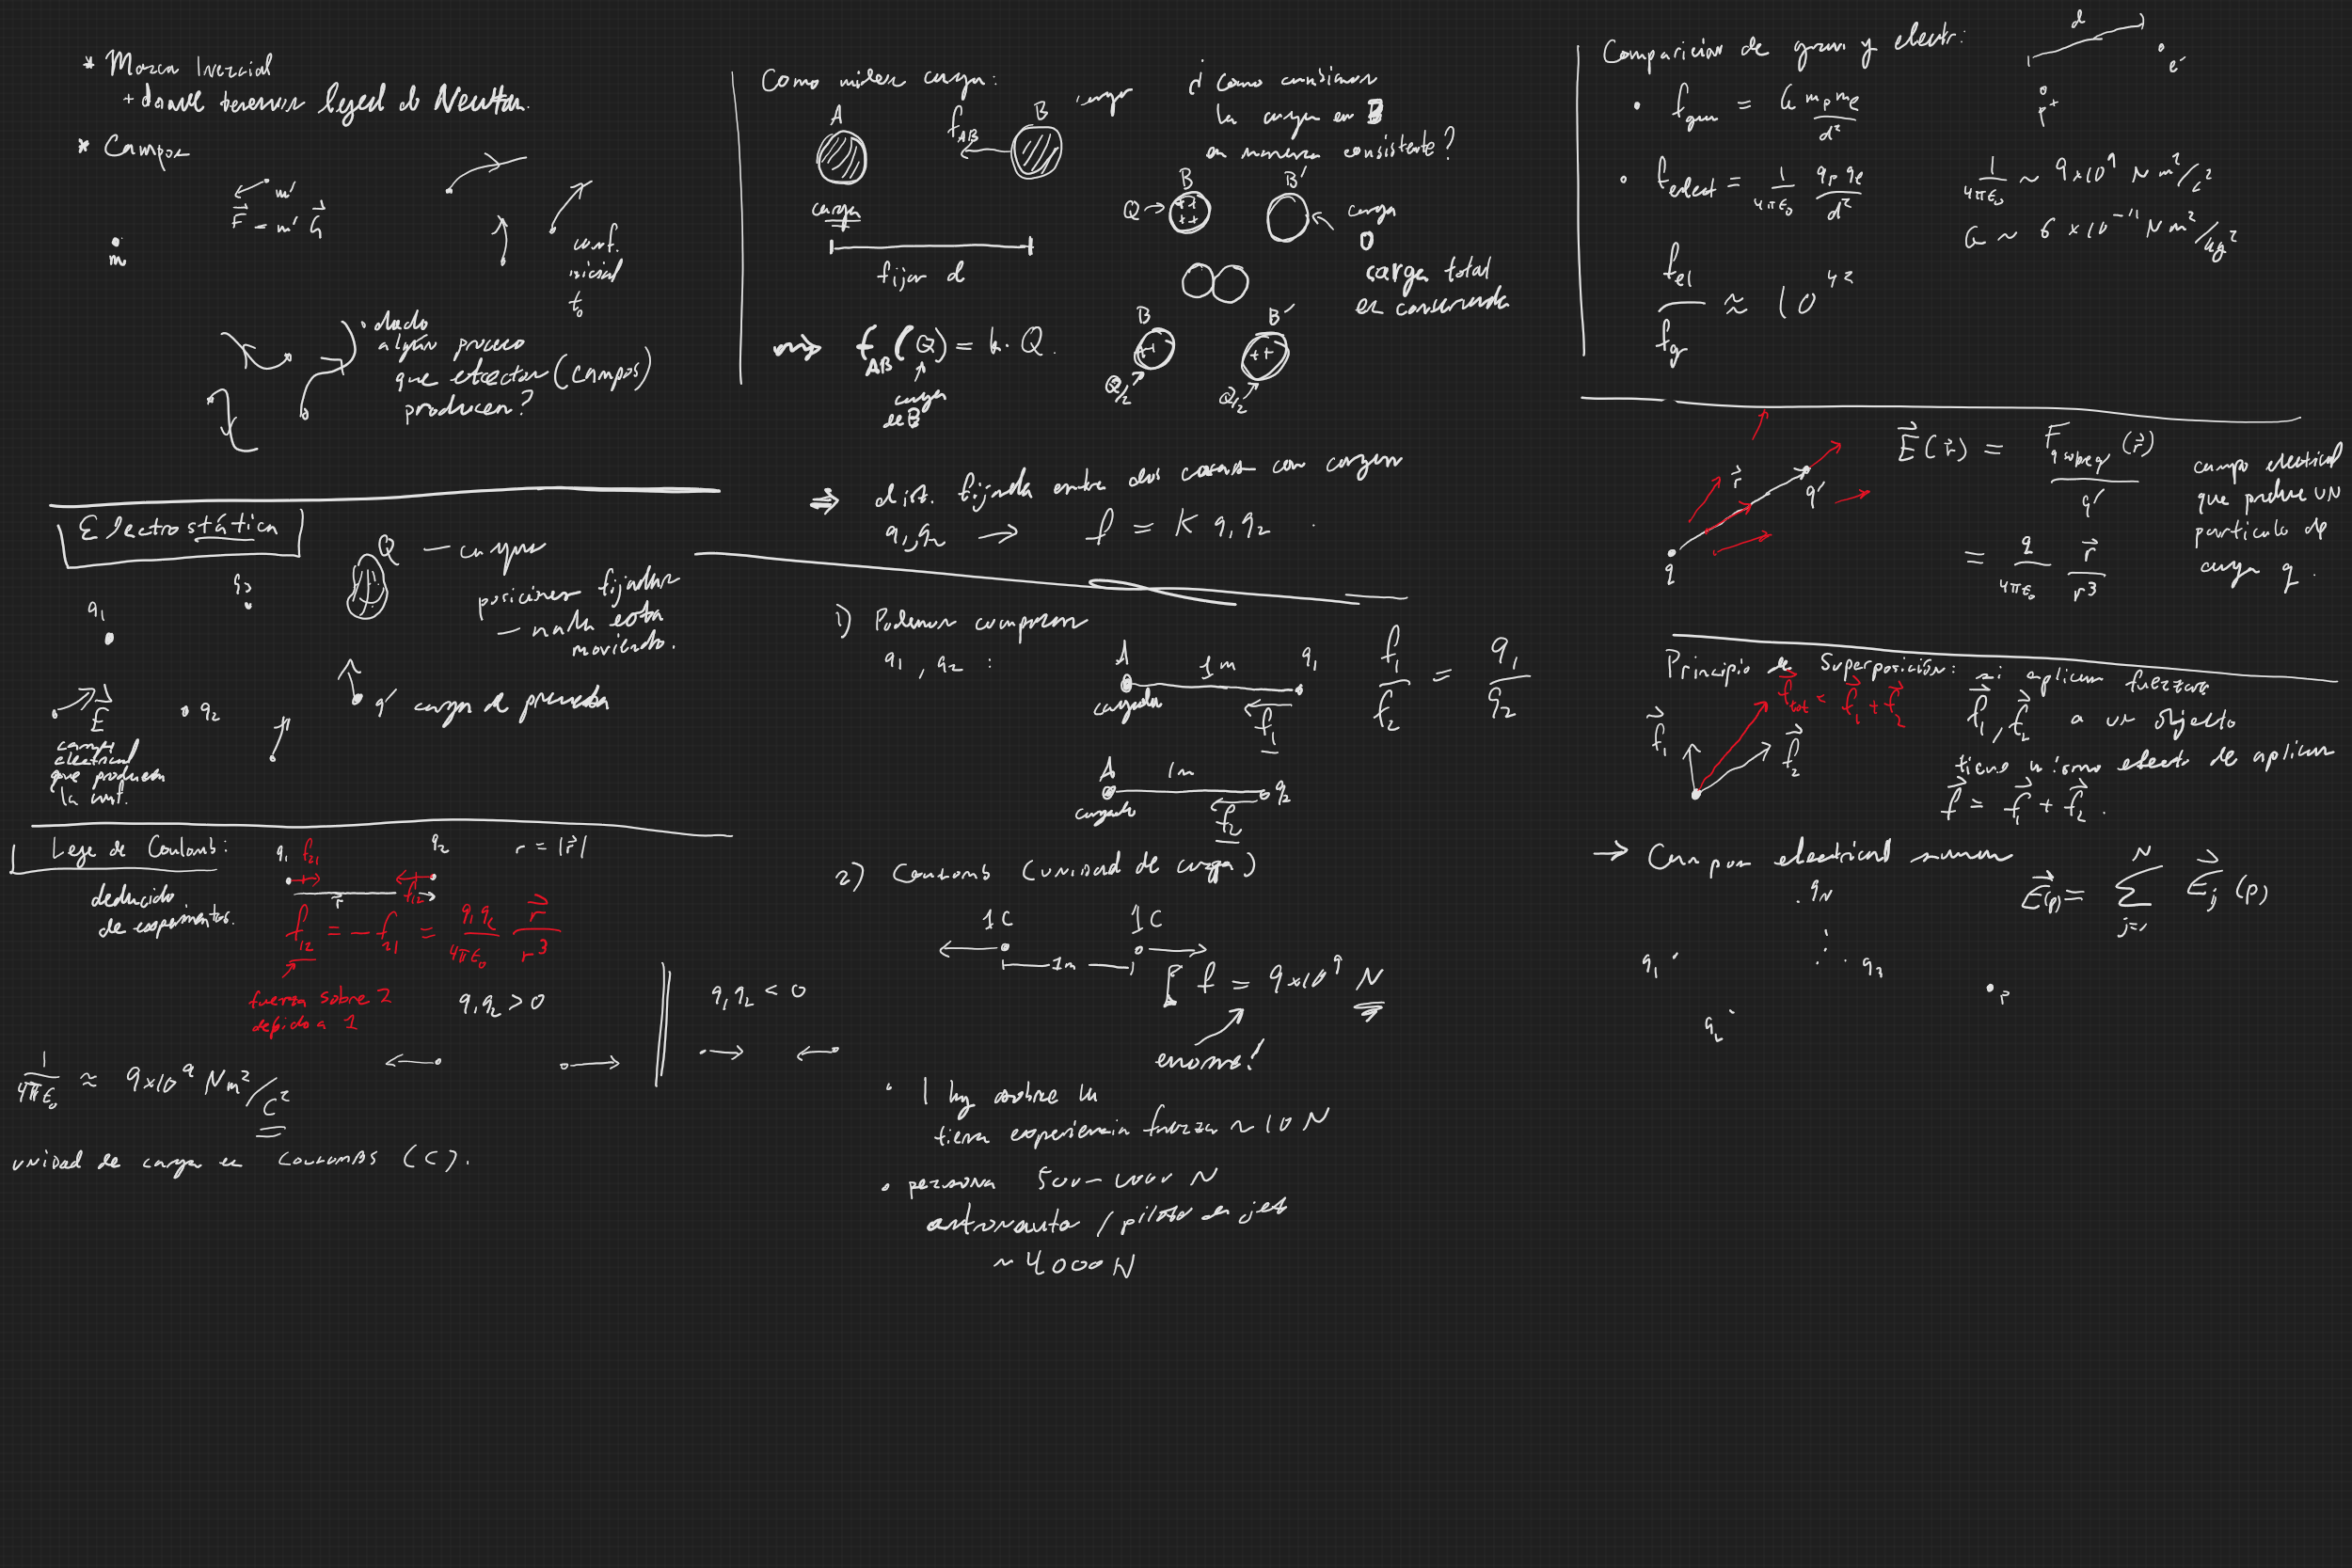 * Marco Inercial
+ donde tenemos leyes de Newton.
* Campos
m'
F⃗ = m' G⃗
m
conf.
inicial
t₀
• dado
algún proceso
que efectos (campos)
producen?
Electrostática
Q — cargas
posiciones fijadas
— nada esta
moviendo.
q₁
q₃
q₂
q' carga de prueba
E⃗
campo
electrical
que producen
la conf.
Leye de Coulomb:
deducido
de experimentos.
q₁ f₂₁
q₂
r = |r⃗|
f₁₂
r⃗
f₁₂ = -f₂₁ = q₁q₂/4πε₀ r⃗/r³
fuerza sobre 2
debido a 1
q₁q₂ > 0
q₁q₂ < 0
1/4πε₀ ≈ 9×10⁹ Nm²/C²
unidad de carga es COULOMBS (C).
Como miden carga:
A
f_AB
B
carga
carga
fijar d
f_AB(Q) = k · Q.
carga
de B
¿ Como cambiamos
la carga en B
en manera consistente?
B
B'
Q →
carga
0
carga total
es conservada
B
B'
Q/2
Q/2
⇒ dist. fijada entre dos cosas con cargas
q₁,q₂ → f = K q₁q₂.
1) Podemos comparar
q₁, q₂ :
A
1m
q₁
cargada
f₁
f₁/f₂ = q₁/q₂
A
1m
q₂
cargado
f₂
2) Coulomb (unidad de carga)
1C
1C
1m
f = 9×10⁹ N
enorme!
• 1 kg sobre la
tierra experiencia fuerza ~ 10 N
• persona 500-1000 N
astronauta / piloto de jet
~ 4000N
Comparicion de grav y electr:
d
p⁺
e⁻
• f_grav = G m_p m_e/d²
• f_elect = 1/4πε₀ q_p q_e/d²
1/4πε₀ ~ 9×10⁹ N m²/C²
G ~ 6 × 10⁻¹¹ N m²/kg²
f_el/f_g ≈ 10⁴²
r⃗
q'
q
E⃗(r⃗) = F_q sobre q'(r⃗)/q'
= q/4πε₀ r⃗/r³
campo electrical
que produce un
particulo de
carga q.
Principio de Superposición: si aplican fuerzas
f⃗₁, f⃗₂ a un objecto
tiene mismo efecto de aplicar
f⃗ = f⃗₁ + f⃗₂.
f⃗_tot = f⃗₁ + f⃗₂
f⃗₁
f⃗₂
→ Campos electrical suman
E⃗(p) = Σ_{j=1}^{N} E⃗_j(p)
q_N
q₁
q₃
q₂
P